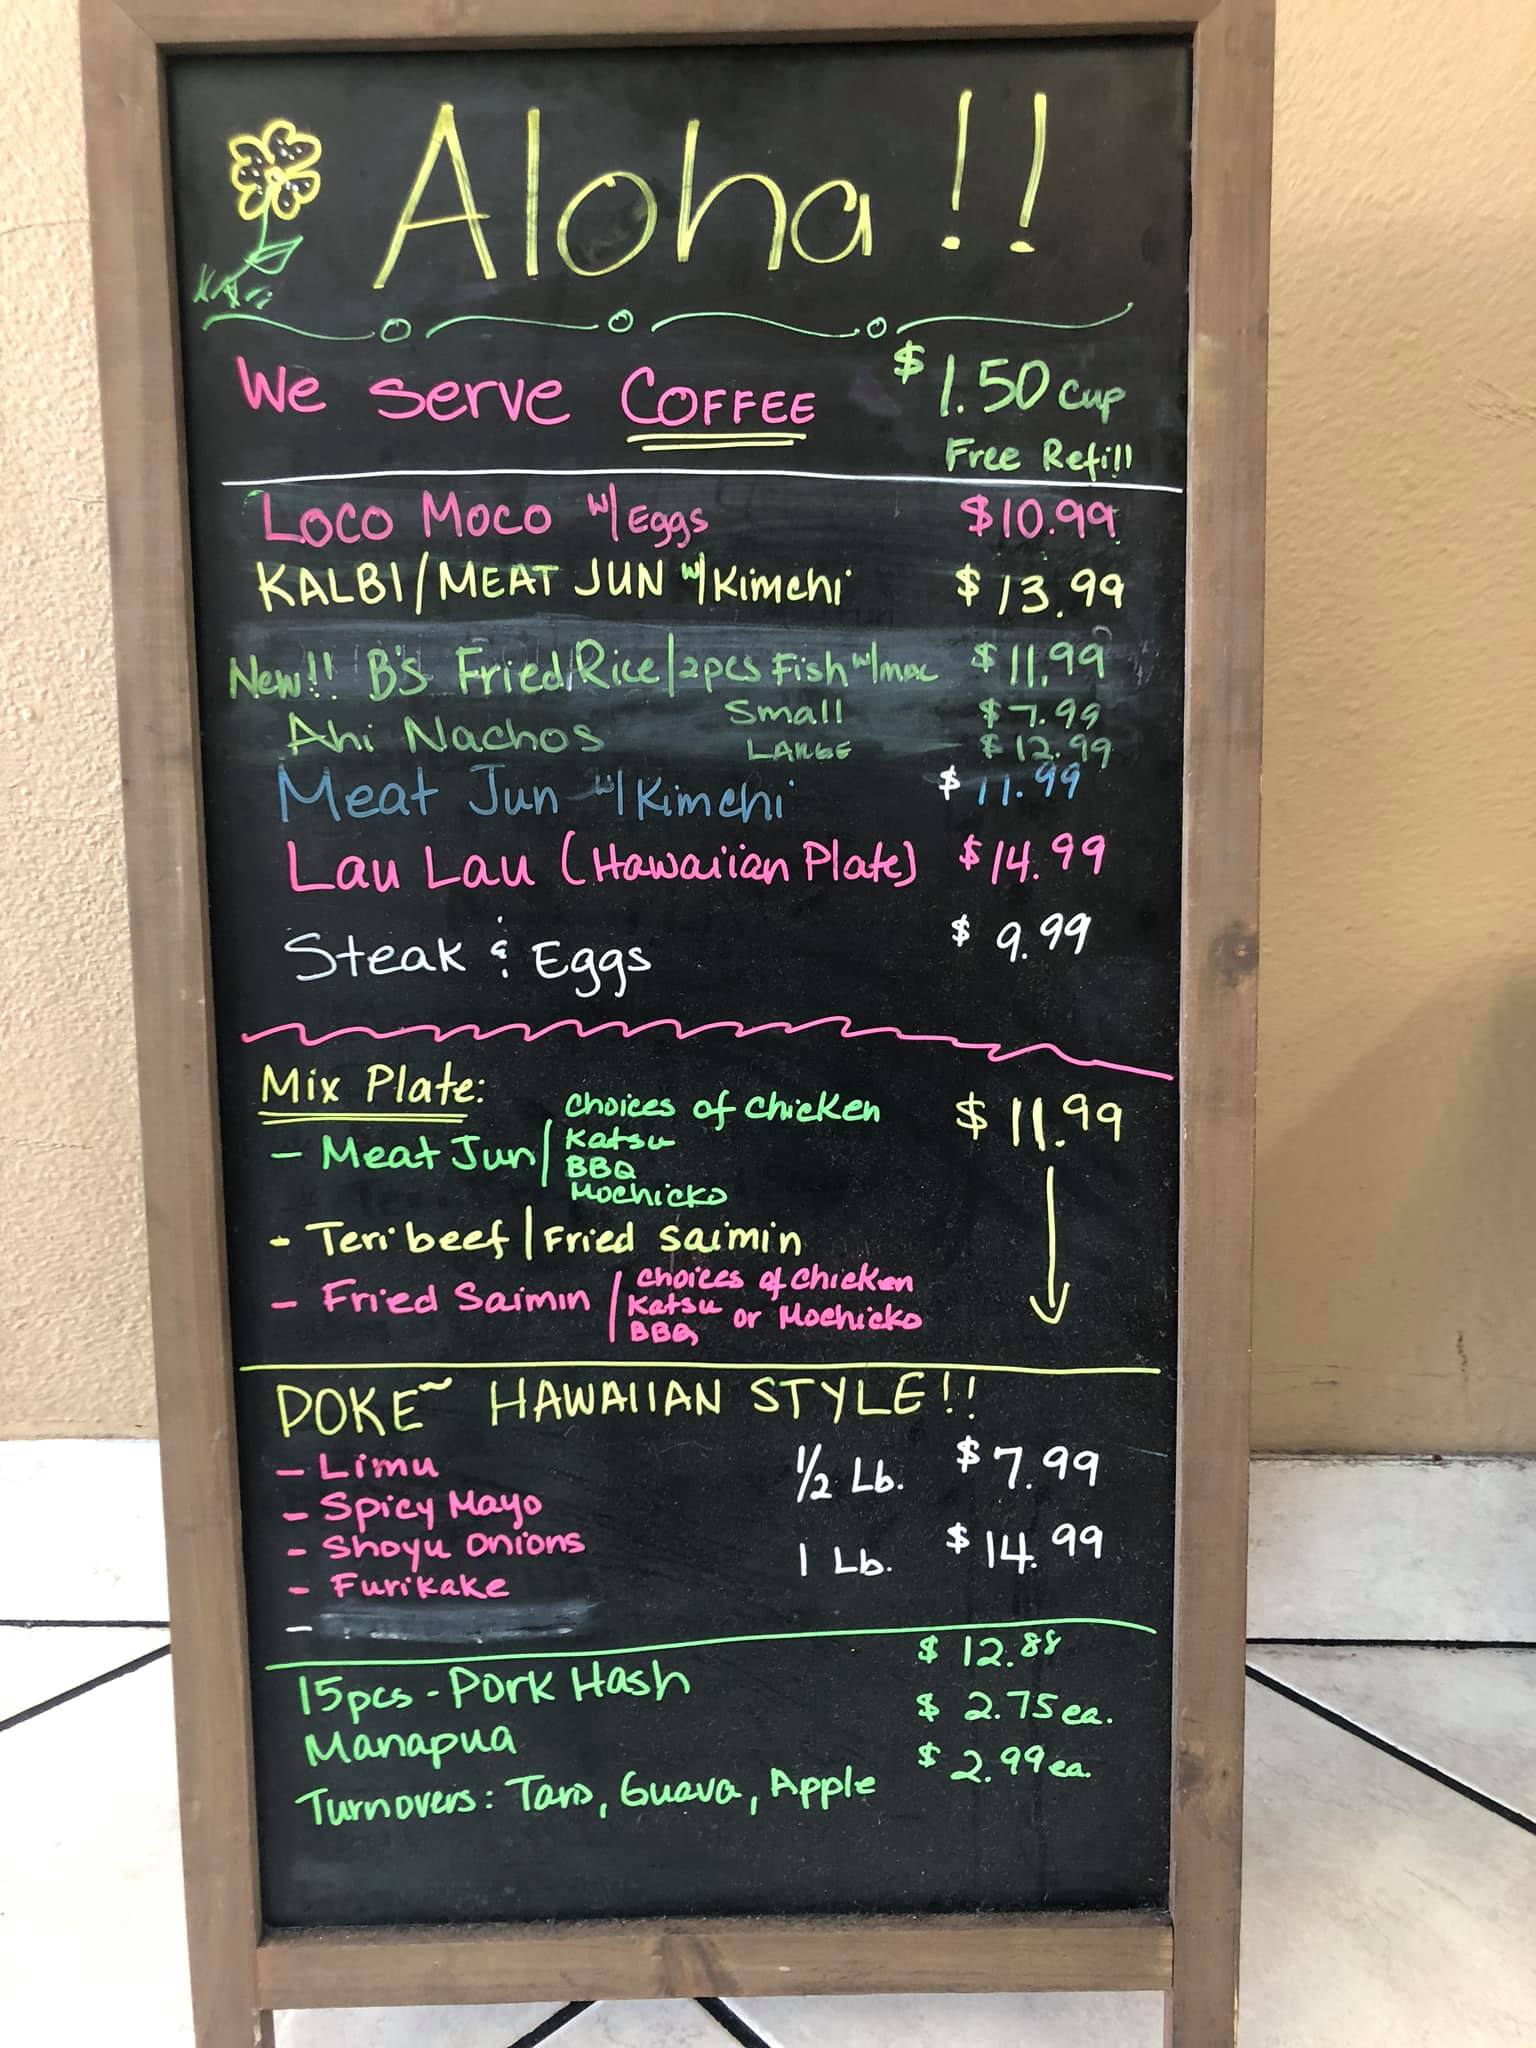 Aloha!!
We serve COFFEE $1.50 cup
Free Refill
Loco Moco w/Eggs $10.99
KALBI/MEAT JUN w/Kimchi $13.99
New!! B's Fried Rice/2pcs Fish w/mac $11.99
Ahi Nachos Small $7.99
LARGE $12.99
Meat Jun w/Kimchi $11.99
Lau Lau (Hawaiian Plate) $14.99
Steak & Eggs $9.99
Mix Plate: $11.99
- Meat Jun/ choices of chicken
Katsu
BBQ
Mochicko
- Teri beef/Fried saimin
- Fried Saimin / choices of chicken
Katsu or Mochicko
BBQ
POKE~ HAWAIIAN STYLE!!
- Limu 1/2 Lb. $7.99
- Spicy Mayo
- Shoyu Onions 1 Lb. $14.99
- Furikake
-
15pcs - Pork Hash $12.88
Manapua $2.75 ea.
Turnovers: Taro, Guava, Apple $2.99 ea.